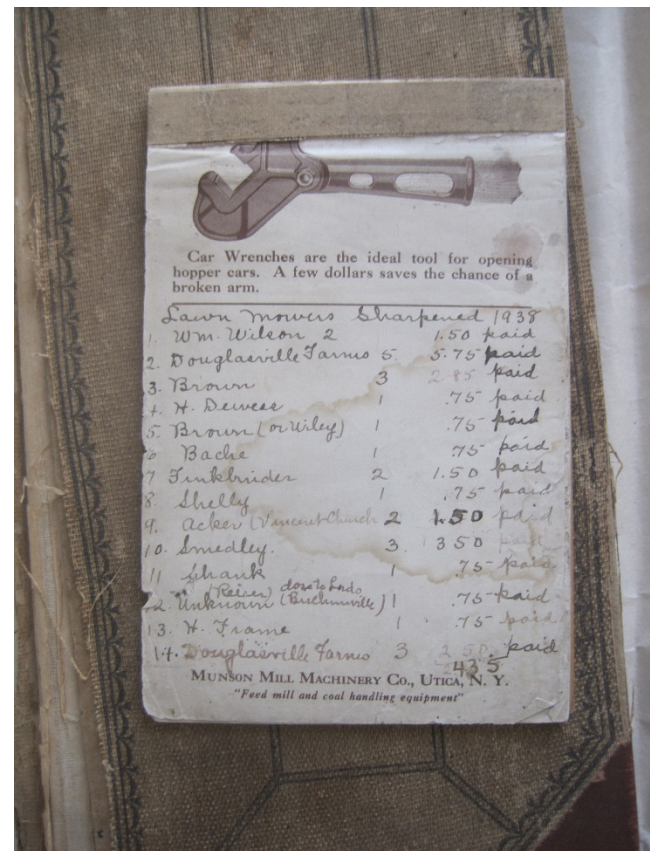 Car Wrenches are the ideal tool for opening
hopper cars. A few dollars saves the chance of a
broken arm.
Lawn Mowers Sharpened 1938
1. Wm. Wilson 2 1.50 paid
2. Douglasville Farms 5. 5.75 paid
3. Brown 3 2.85 paid
4. H. Dewees 1 .75 paid
5. Brown (or Wiley) 1 .75 paid
6 Bache 1 .75 paid
7 Finkbinder 2 1.50 paid
8. Shelly 1 .75 paid
9. Acker (Vincent Church 2 1.50 paid
10. Smedley. 3. 3 50 paid
11 Shank 1 .75 paid
12. Unknown (Bucknville) 1 .75 paid
13. H. Frame 1 .75 paid
14. Douglasville Farms 3 2 50. paid
2435
MUNSON MILL MACHINERY CO., UTICA, N. Y.
"Feed mill and coal handling equipment"